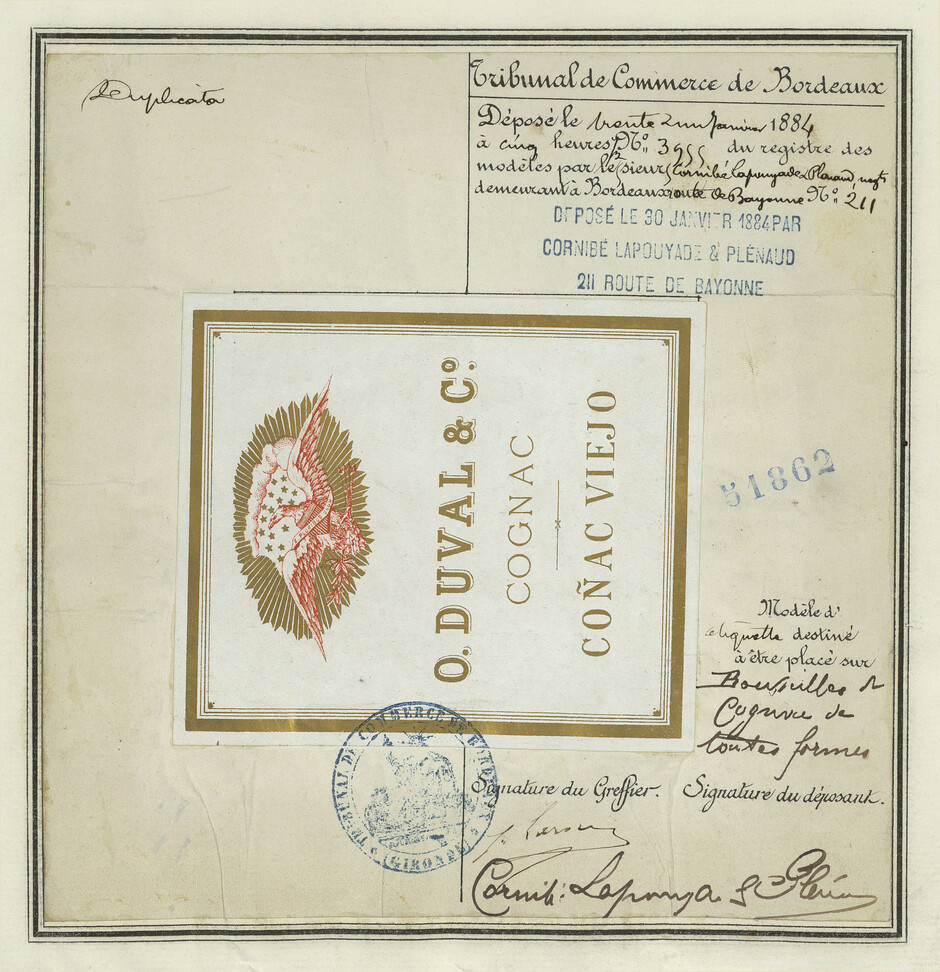 Duplicata
Tribunal de Commerce de Bordeaux
Déposé le trente Janvier 1884
à cinq heures No. 3955 du registre des
modèles par le sieurs Cornibé Lapouyade & Plénaud, negts
demeurant à Bordeaux route de Bayonne No. 211
DEPOSÉ LE 30 JANVIER 1884 PAR
CORNIBÉ LAPOUYADE & PLÉNAUD
211 ROUTE DE BAYONNE
O. DUVAL & Co.
COGNAC
COÑAC VIEJO
51862
Modèle d'
etiquette destiné
à être placé sur
Bouteilles de
Cognac de
toutes formes
TRIBUNAL DE COMMERCE DE BORDEAUX
(GIRONDE)
Signature du Greffier. Signature du déposant.
Cornibé Lapouya & Plénau